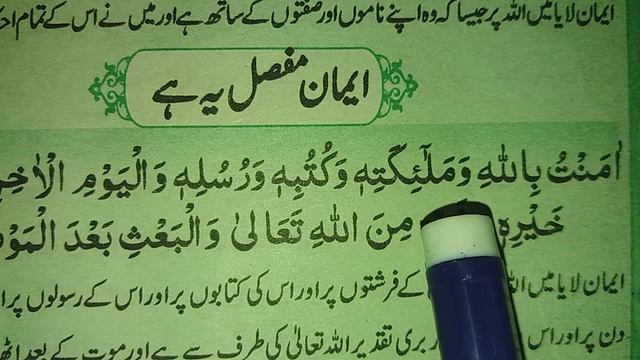 ایمان لایا میں اللہ پر جیسا کہ وہ اپنے ناموں اور صفتوں کے ساتھ ہے اور میں نے اس کے تمام
ایمان مفصل یہ ہے
اٰمَنْتُ بِاللّٰهِ وَمَلٰٓئِكَتِهٖ وَكُتُبِهٖ وَرُسُلِهٖ وَالْيَوْمِ
خَيْرِهٖ مِنَ اللّٰهِ تَعَالٰى وَالْبَعْثِ بَعْدَ
ایمان لایا میں کے فرشتوں پر اور اس کی کتابوں پر اور اس کے رسولوں پر
دن پر اور اس بری تقدیر اللہ تعالیٰ کی طرف سے ہے اور موت کے بعد